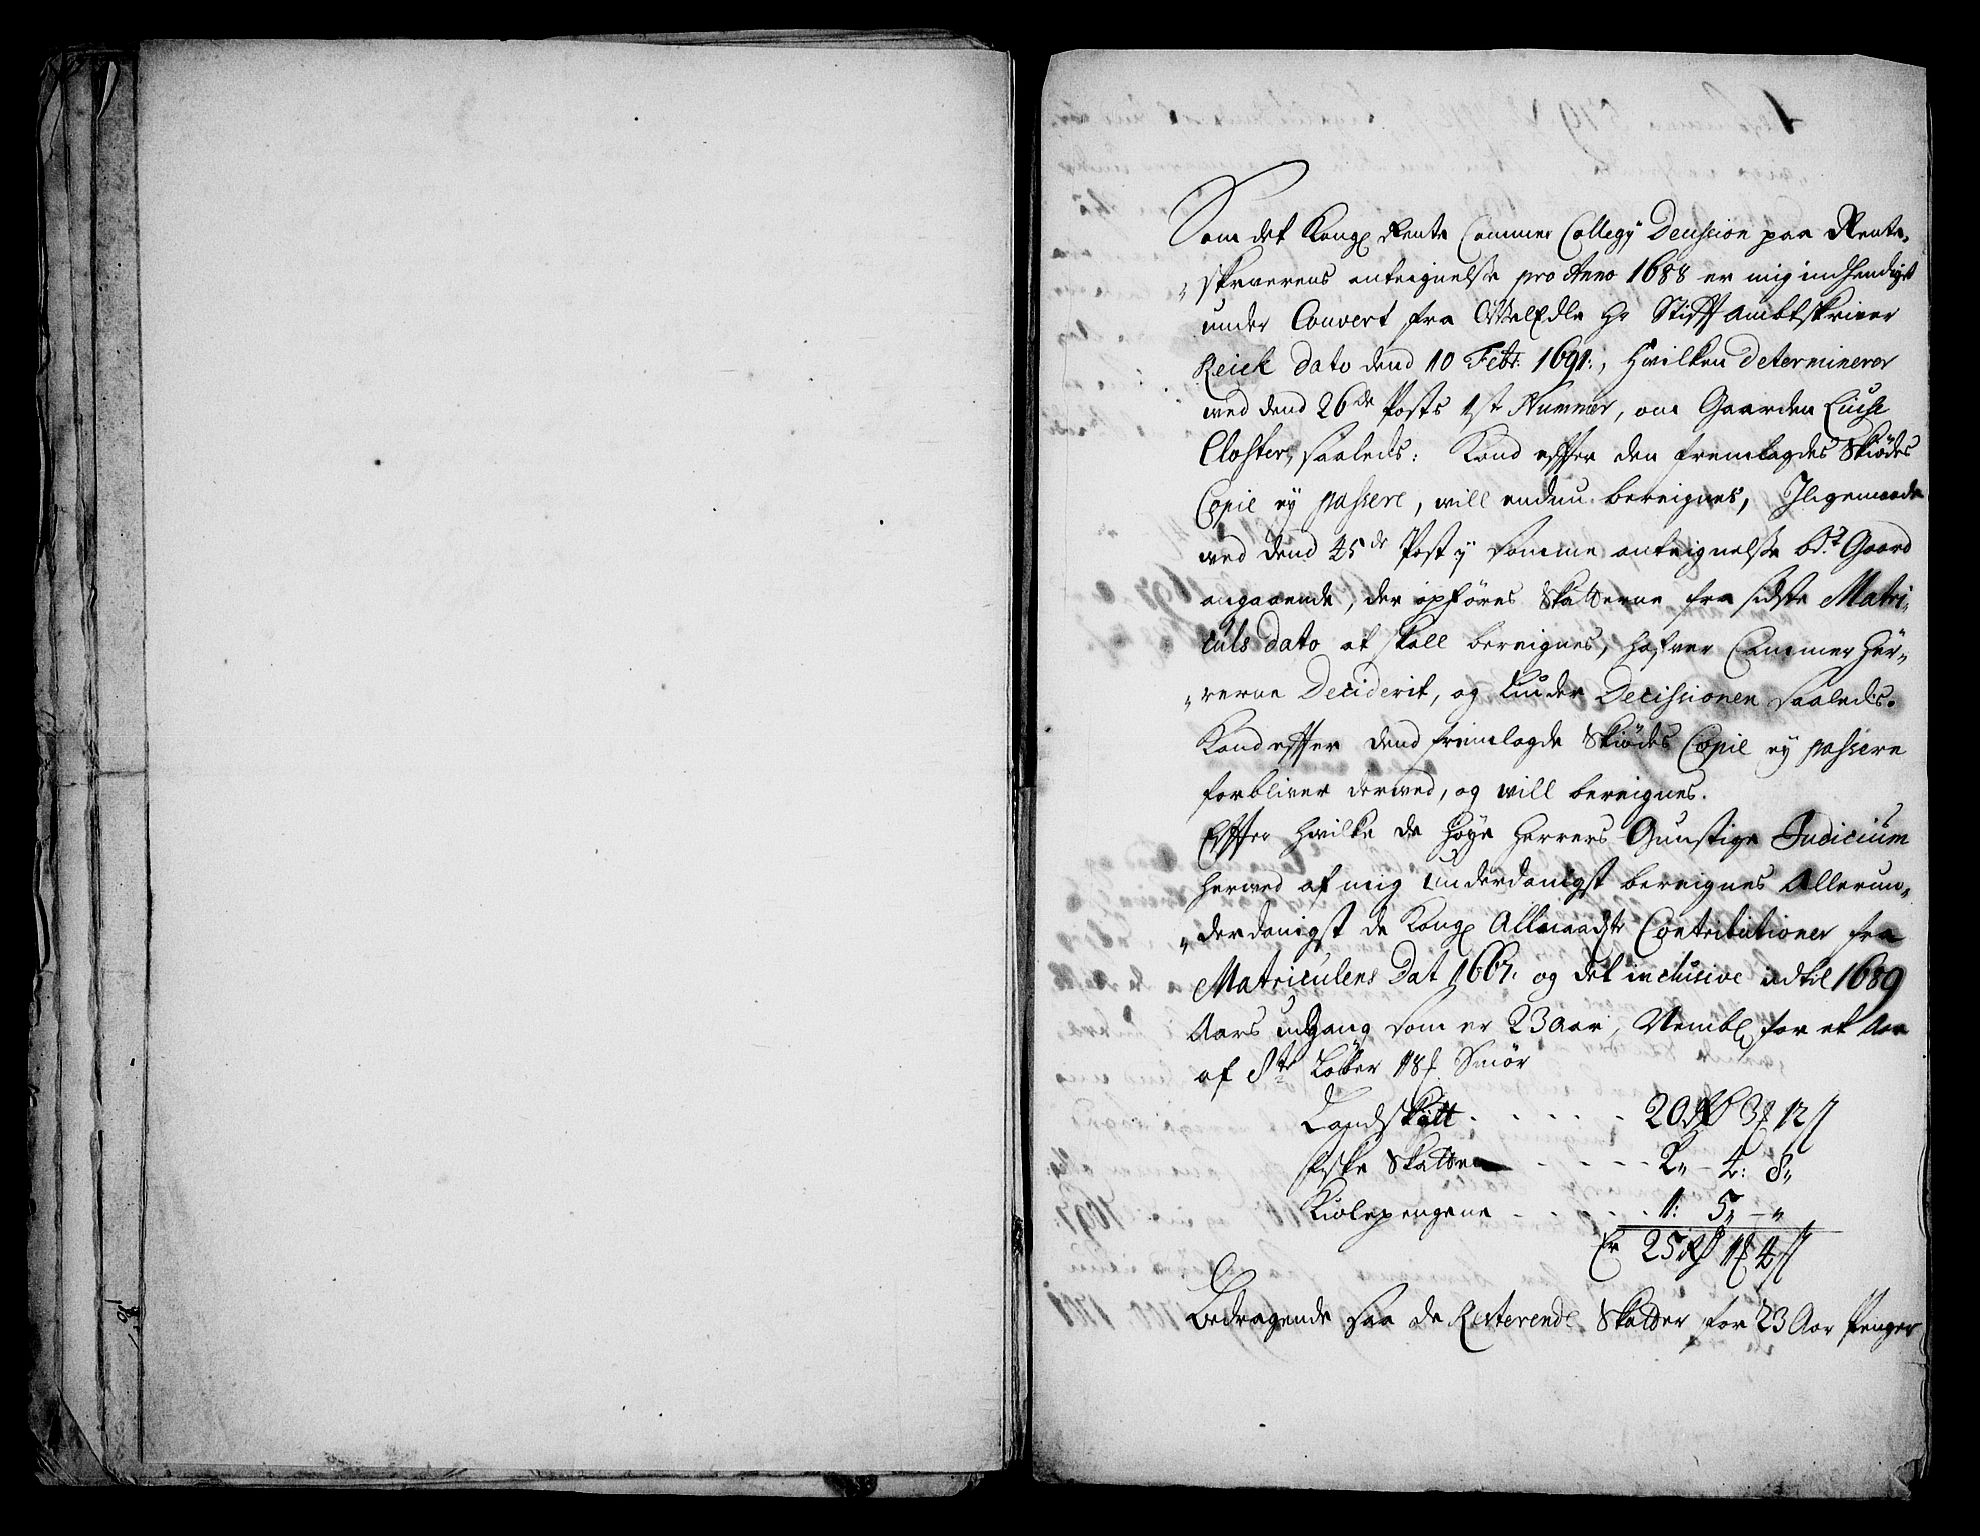 1
Som det Kongl Rente Cammer Collegy Decission paa Rente,
„skrverens anteignelsse pro Anno 1688 er mig indhendiget
under Couvert fra WelEdle Hr Stifftambtskriver
Reick dato dend 10 Febr: 1691:, Hvilken determinerer
ved dend 26de Posts 1st Nummer, om Gaarden Liuse
Closter, saaleds: Kand effter den fremlagdes Skiödes
Copie ey passere, vill endnu bereignes, Iligemaade
ved dend 45de Post y samme anteignelsse bd.te Gaard
angaaende, der opföres Skatterne fra sidste Matri,
culs dato at skall bereignes, hafver Cammer Her,
„rerne Deciderit, og Liuder Decissionen saaleds.
Kand effter dend fremlagde Skiödes Copie ey passere
forbliver derved, og vill bereignes.
Effter hvilke de höye Herrers Gunstige Judicium
herved af mig underdanigst bereignes Allerun,
„derdanigst de Kongl Allernaadgste Contributioner fra
Matriculens Dat 1667. og det inclusive indtil 1689
Aars udgang som er 23 aar, Nembl for et Aar
af 8te Löber 18 Smör
Landskatt . . . . . 20 3 12
fiske Skatten . . . . 2„ 4: 8„
Kiolepengene . . . . 1: 5„ „
Er 25 1 4
Bedragende saa de Resterende Skatter for 23 Aar Penger